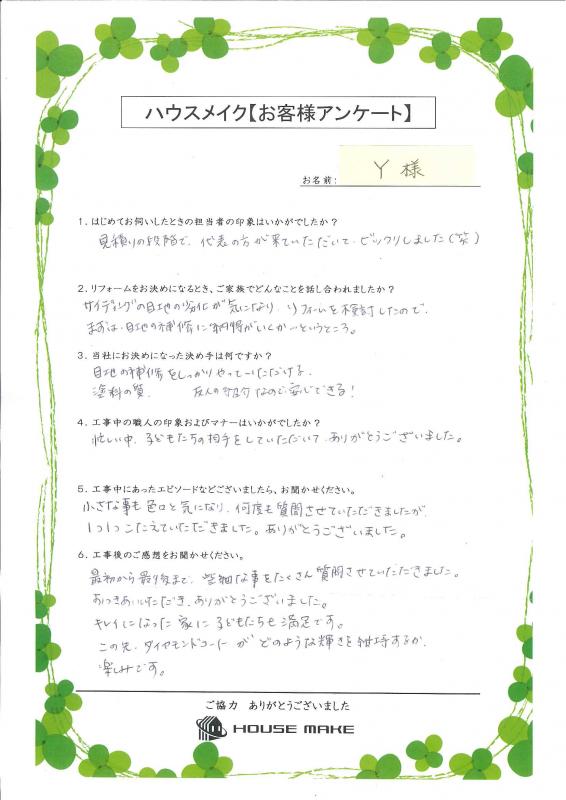 ハウスメイク【お客様アンケート】
お名前: Y 様
1．はじめてお伺いしたときの担当者の印象はいかがでしたか？
見積りの段階で、代表の方が来ていただいて、ビックリしました（笑）
2．リフォームをお決めになるとき、ご家族でどんなことを話し合われましたか？
サイディングの目地の劣化が気になり、リフォームを検討したので、
まずは、目地の補修に納得がいくか…というところ。
3．当社にお決めになった決め手は何ですか？
目地の補修をしっかりやっていただける。
塗料の質。 友人の紹介なので安心できる！
4．工事中の職人の印象およびマナーはいかがでしたか？
忙しい中、子どもたちの相手をしていただいて、ありがとうございました。
5．工事中にあったエピソードなどございましたら、お聞かせください。
小さな事も色々と気になり、何度も質問させていただきましたが、
1つ1つこたえていただきました。ありがとうございました。
6．工事後のご感想をお聞かせください。
最初から最後まで、些細な事をたくさん質問させていただきました。
おつきあいいただき、ありがとうございました。
キレイになった家に子どもたちも満足です。
この先、ダイヤモンドコートがどのような輝きを維持するか、
楽しみです。
ご協力 ありがとうございました
HOUSE MAKE